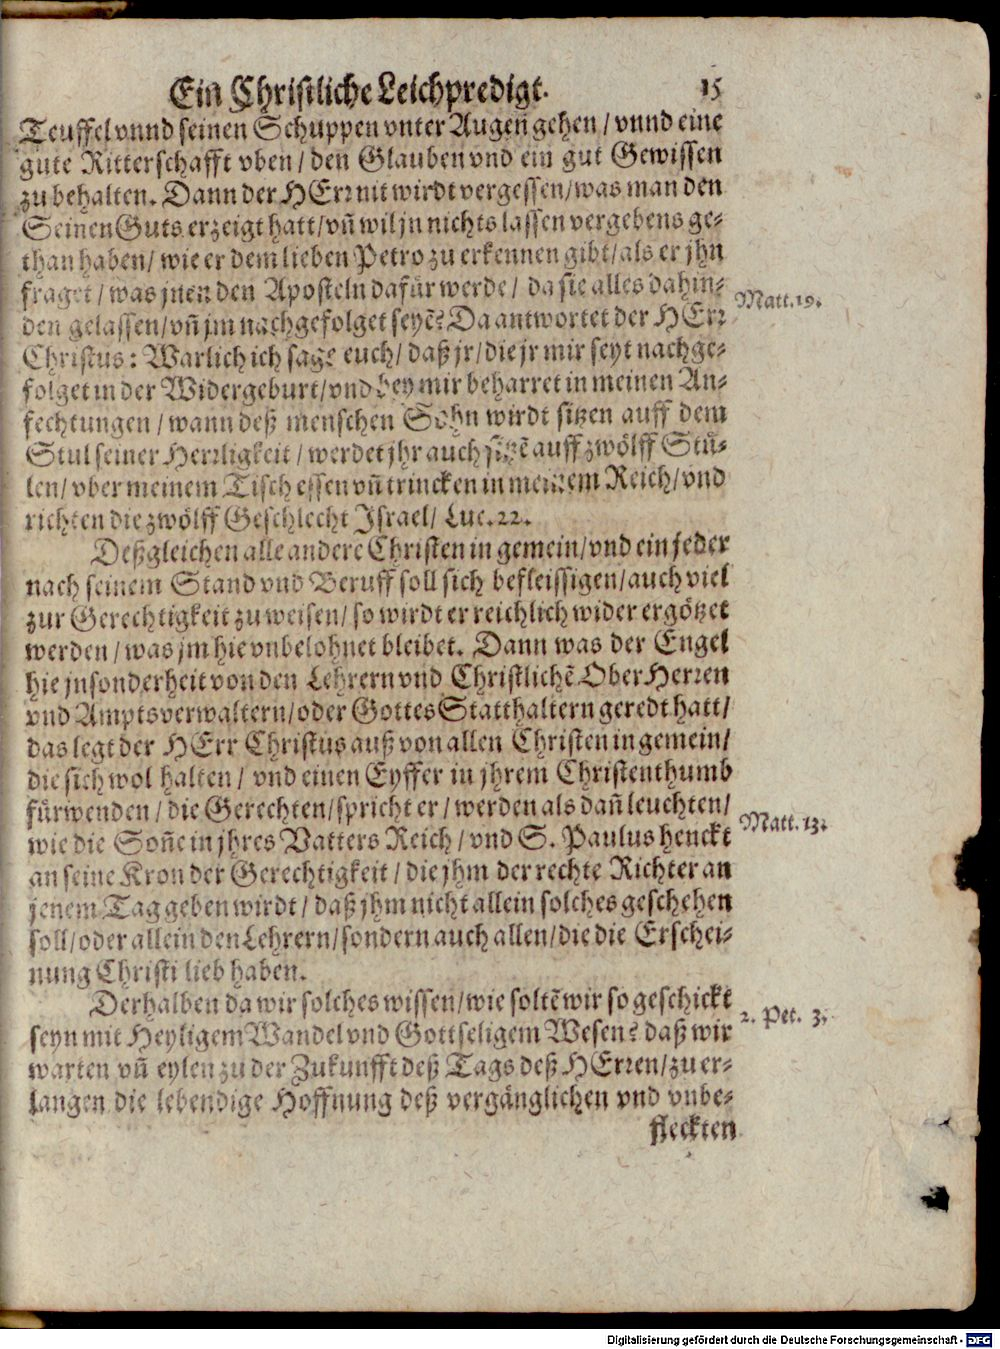 Ein Christliche Leichpredigt. 15
Teuffel vnnd seinen Schuppen vnter Augen gehen / vnnd eine
gute Ritterschafft vben / den Glauben vnd ein gut Gewissen
zu behalten. Dann der HErr nit wirdt vergessen / was man den
Seinen Guts erzeigt hatt / vñ wil jn nichts lassen vergebens ge-
than haben / wie er dem lieben Petro zu erkennen gibt / als er jhn
fraget / was jnen den Aposteln dafür werde / da sie alles dahin-
den gelassen / vñ jm nachgefolget seyẽ? Da antwortet der HErr
Matt. 19.
Christus: Warlich ich sage euch / daß jr / die jr mir seyt nachge-
folget in der Widergeburt / vnd bey mir beharret in meinen An-
fechtungen / wann deß menschen Sohn wirdt sitzen auff dem
Stul seiner Herrligkeit / werdet jhr auch sitzẽ auff zwölff Stü-
len / vber meinem Tisch essen vñ trincken in meinem Reich / vnd
richten die zwölff Geschlecht Israel / Luc. 22.
Deßgleichen alle andere Christen in gemein / vnd ein jeder
nach seinem Stand vnd Beruff soll sich befleissigen / auch viel
zur Gerechtigkeit zu weisen / so wirdt er reichlich wider ergötzet
werden / was jm hie vnbelohnet bleibet. Dann was der Engel
hie jnsonderheit von den Lehrern vnd Christlichẽ OberHerren
vnd Amptsverwaltern / oder Gottes Statthaltern geredt hatt /
das legt der HErr Christus auß von allen Christen in gemein /
die sich wol halten / vnd einen Eyffer in jhrem Christenthumb
fürwenden / die Gerechten / spricht er / werden als dañ leuchten /
wie die Soñe in jhres Vatters Reich / vnd S. Paulus henckt
Matt. 13.
an seine Kron der Gerechtigkeit / die jhm der rechte Richter an
jenem Tag geben wirdt / daß jhm nicht allein solches geschehen
soll / oder allein den Lehrern / sondern auch allen / die die Erschei-
nung Christi lieb haben.
Derhalben da wir solches wissen / wie soltẽ wir so geschickt
2. Pet. 3.
seyn mit Heyligem Wandel vnd Gottseligem Wesen? daß wir
warten vñ eylen zu der Zukunfft deß Tags deß HErren / zu er-
langen die lebendige Hoffnung deß vergänglichen vnd vnbe-
fleckten
Digitalisierung gefördert durch die Deutsche Forschungsgemeinschaft - DFG